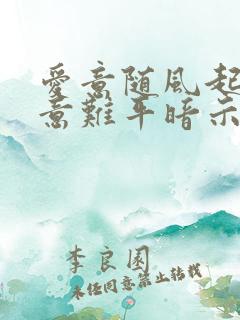 愛意随風起
意難平暗示
李良園
未经同意禁止转载